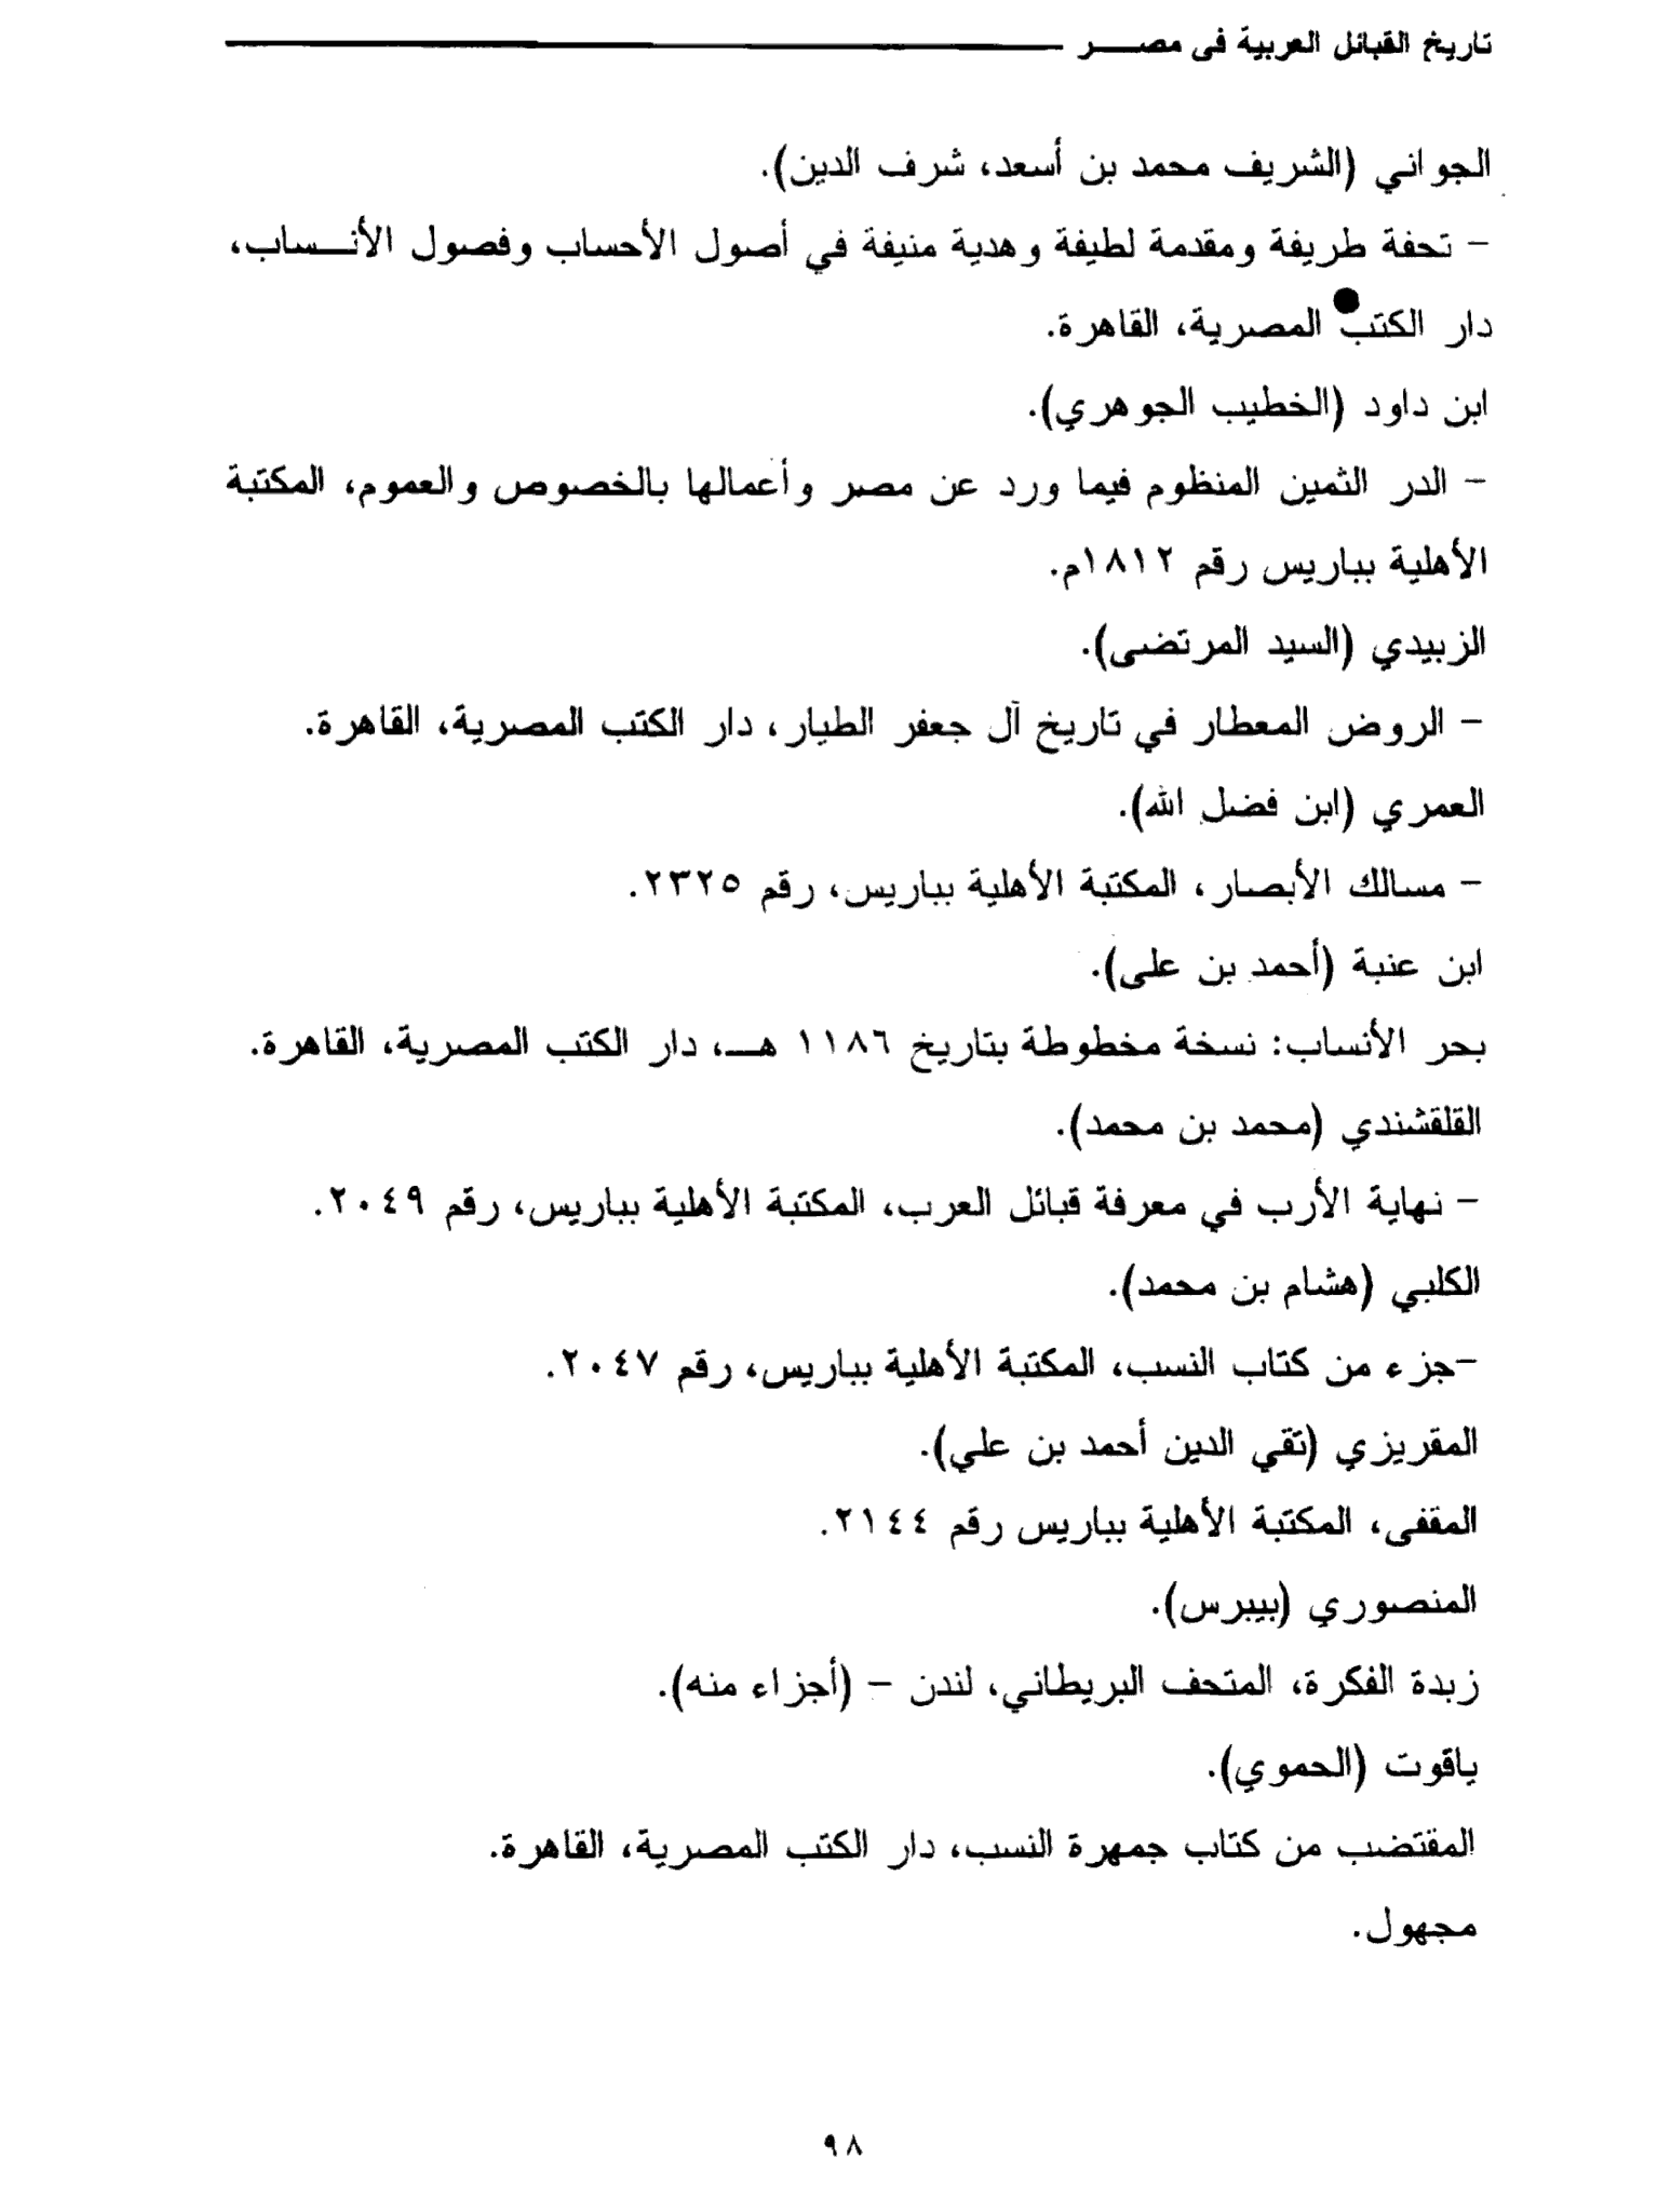 تاريخ القبائل العربية فى مصـــر
الجواني (الشريف محمد بن أسعد، شرف الدين).
- تحفة طريفة ومقدمة لطيفة وهدية منيفة في أصول الأحساب وفصول الأنـساب،
دار الكتب المصرية، القاهرة.
ابن داود (الخطيب الجوهري).
- الدر الثمين المنظوم فيما ورد عن مصر وأعمالها بالخصوص والعموم، المكتبة
الأهلية بباريس رقم ١٨١٢م.
الزبيدي (السيد المرتضى).
- الروض المعطار في تاريخ آل جعفر الطيار، دار الكتب المصرية، القاهرة.
العمري (ابن فضل الله).
- مسالك الأبصار، المكتبة الأهلية بباريس، رقم ٢٣٢٥.
ابن عنبة (أحمد بن على).
بحر الأنساب: نسخة مخطوطة بتاريخ ١١٨٦ هـ، دار الكتب المصرية، القاهرة.
القلقشندي (محمد بن محمد).
- نهاية الأرب في معرفة قبائل العرب، المكتبة الأهلية بباريس، رقم ٢٠٤٩.
الكلبي (هشام بن محمد).
-جزء من كتاب النسب، المكتبة الأهلية بباريس، رقم ٢٠٤٧.
المقريزي (تقي الدين أحمد بن علي).
المقفى، المكتبة الأهلية بباريس رقم ٢١٤٤.
المنصوري (بيبرس).
زبدة الفكرة، المتحف البريطاني، لندن - (أجزاء منه).
ياقوت (الحموي).
المقتضب من كتاب جمهرة النسب، دار الكتب المصرية، القاهرة.
مجهول.
٩٨